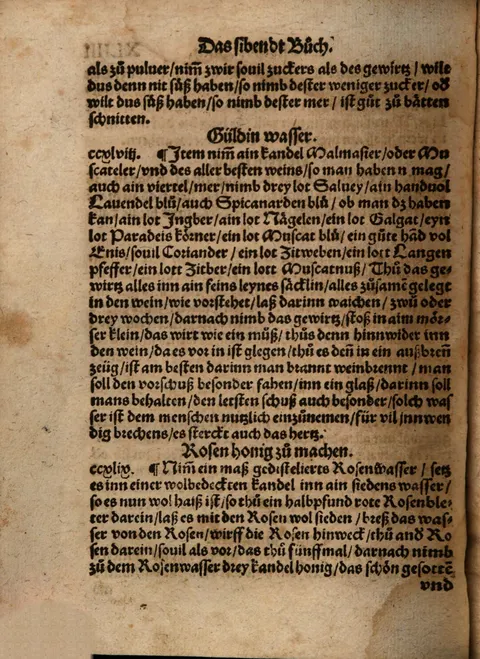 Das sibendt Bůch.
als zů puluer/nim̃ zwir souil zuckers als des gewirtz/wile
dus denn nit süß haben/so nimb dester weniger zucker/oď
wilt dus süß haben/so nimb dester mer/ist gůt zů båtten
schnitten.
Güldin wasser.
ccxlviij. ¶Item nim̃ ain kandel Malmasier/oder Mu
scateler/vnd des aller besten weins/so man haben n mag/
auch ain viertel/mer/nimb drey lot Saluey/ain handuol
Lauendel blů/auch Spicanarden blů/ob man dz haben
kan/ain lot Ingber/ain lot Någelen/ein lot Galgat/eyn
lot Paradeis körner/ein lot Muscat blů/ein gůte hãd vol
Enis/souil Coriander/ein lot Zitweben/ein lott Langen
pfeffer/ein lott Zitber/ein lott Muscatnuß/Thů das ge-
wirtz alles inn ain feins leynes såcklin/alles zůsamẽ gelegt
in den wein/wie vorstehet/laß darinn waichen/zwů oder
drey wochen/darnach nimb das gewirtz/stoß in aim mör-
ser klein/das wirt wie ein můß/thůs denn hinnwider inn
den wein/da es vor in ist glegen/thů es deñ in ein außbreñ
zeüg/ist am besten darinn man brannt weinbrennt/man
soll den vorschuß besonder fahen/inn ein glaß/darinn soll
mans behalten/den letsten schuß auch besonder/solch was
ser ist dem menschen nutzlich einzůnemen/für vil/innwen
dig brechens/es sterckt auch das hertz.
Rosen honig zů machen.
ccxlix. ¶Nim̃ ein maß gedistelierts Rosenwasser/setz
es inn einer wolbedeckten kandel inn ain siedens wasser/
so es nun wol haiß ist/so thů ein halbpfund rote Rosenble-
ter darein/laß es mit den Rosen wol sieden/breß das was-
ser von den Rosen/wirff die Rosen hinweck/thů anď Ro
sen darein/souil als vor/das thů fünffmal/darnach nimb
zů dem Rosenwasser drey kandel honig/das schön gesottẽ
vnd